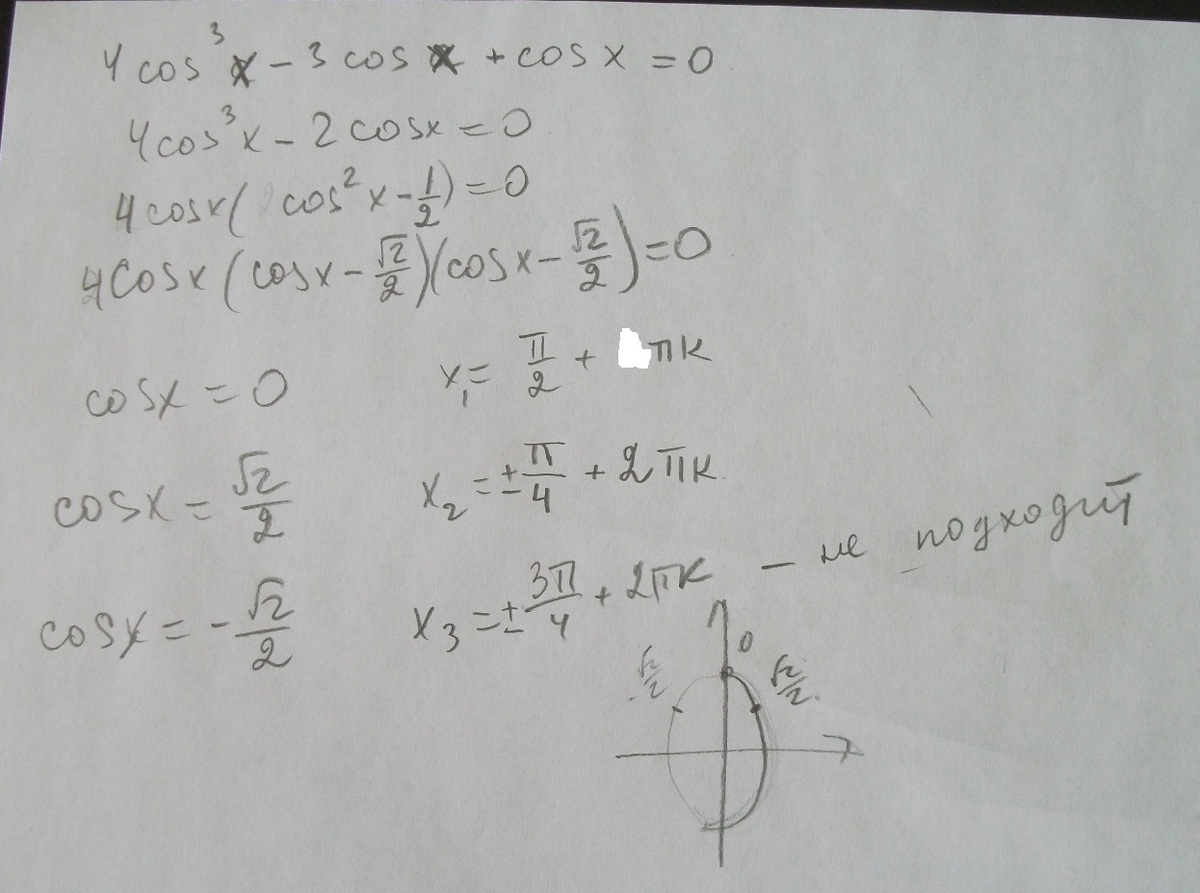 4cos³x - 3cosx + cosx = 0
4cos³x - 2cosx = 0
4cosx( cos²x - 1/2) = 0
4cosx(cosx - √2/2)(cosx - √2/2) = 0
cosx = 0 x₁ = π/2 + πк
cosx = √2/2 x₂ = ±π/4 + 2πк
cosx = -√2/2 x₃ = ±3π/4 + 2πк - не подходит
0
-√2/2 √2/2